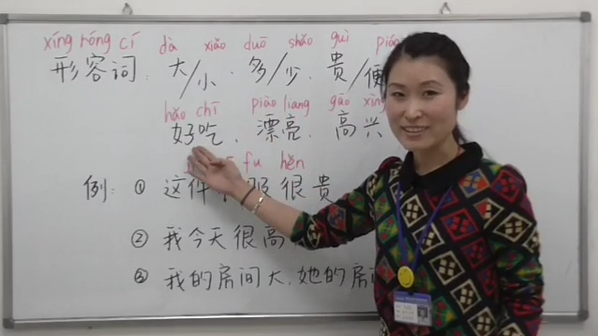 xíng róng cí dà xiǎo duō shǎo guì pián
形容词：大/小、多/少、贵/便
hǎo chī piào liang gāo xìng
好吃、漂亮、高兴
fu hěn
例：① 这件 服很贵
② 我今天很高
③ 我的房间大，她的房间